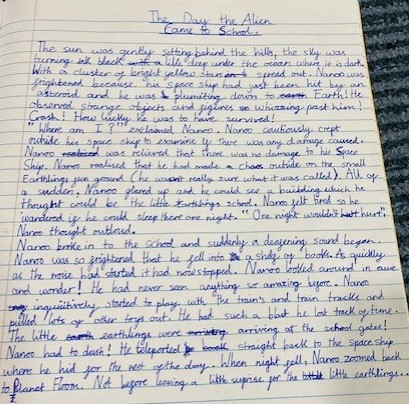 The Day the Alien
Came to School.
The sun was gently setting behind the hills, the sky was
turning ink black with a like deep under the ocean where it is dark.
With a cluster of bright yellow stars spread out. Nanoo was
frightened because his space ship had just been hit by an
asteroid and he was plumiting down to earth Earth! He
observed strange objects and figures whizzing past him!
Crash! How lucky he was to have survived!
"Where am I?" exclaimed Nanoo. Nanoo cautiously crept
outside his space ship to examine if there was any damage caused.
Nanoo realised was relieved that there was no damage to his space
ship. Nanoo realised that he had made a chaos outside on the small
Earthlings gun ground (he wasn't really sure what it was called). All of
a sudden, Nanoo glared up and he could see a building which he
thought could be the little Earthlings school. Nanoo felt tired so he
wandered if he could sleep there one night. "One night wouldn't hurt",
Nanoo thought outloud.
Nanoo broke in to the school and suddenly a deafening sound began.
Nanoo was so frightened that he fell into a shelf of books. As quickly
as the noise had started it had now stopped. Nanoo looked around in awe
and wonder! He had never seen anything so amazing before. Nanoo
inquisitively started to play with the train's and train tracks and
pulled lots of other toys out. He had such a blast he lost track of time.
The little earth earthlings were arriving at the school gates!
Nanoo had to dash! He teleported back straight back to the space ship
where he hid for the rest of the day. When night fell, Nanoo zoomed back
to Planet Floom. Not before leaving a little surprise for the little earthlings...